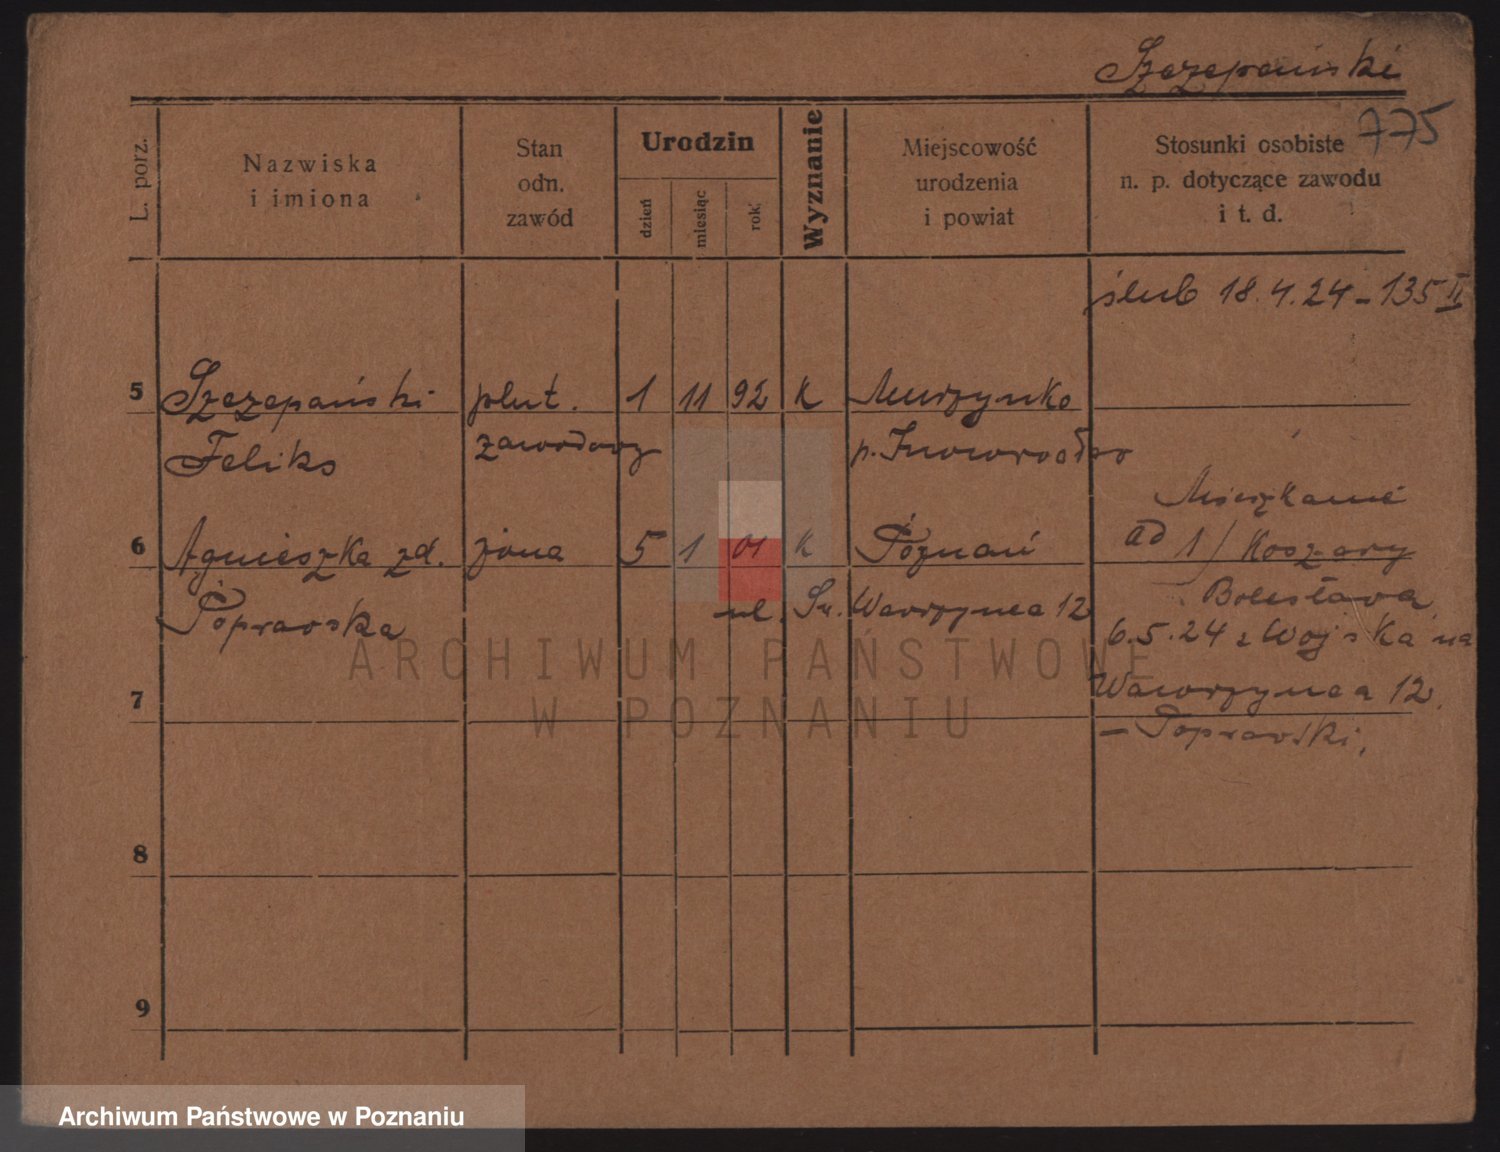 Szczepański
775
L. porz.
Nazwiska
i imiona
Stan
odn.
zawód
Urodzin
dzień
miesiąc
rok
Wyznanie
Miejscowość
urodzenia
i powiat
Stosunki osobiste
n. p. dotyczące zawodu
i t. d.
ślub 18.4.24 – 135 II
5 Szczepański plut. 1 11 92 K Murzynko
Feliks zawodowy p. Inowrocław
Mieszkanie
6 Agnieszka zd. żona 5 1 01 K Poznań ad 1/ Koszary
Poprawska ul. Św. Wawrzyńca 12 Bolesława
6.5.24 z Wojska na
7 Wawrzyńca 12.
– Poprawski.
8
9
ARCHIWUM PAŃSTWOWE
W POZNANIU
Archiwum Państwowe w Poznaniu